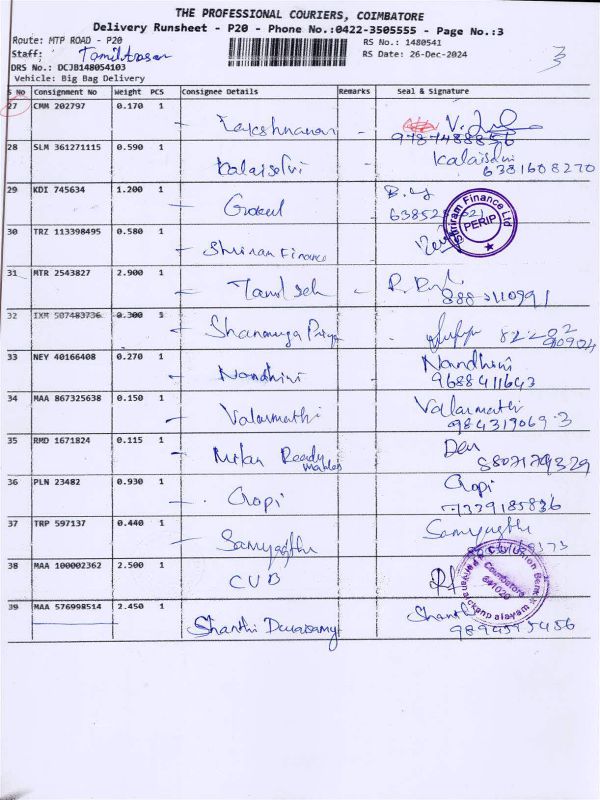 THE PROFESSIONAL COURIERS, COIMBATORE
Delivery Runsheet - P20 - Phone No.:0422-3505555 - Page No.:3
Route: MTP ROAD - P20 RS No.: 1480541
Staff: Tamilarasan RS Date: 26-Dec-2024
DRS No.: DCJB148054103
Vehicle: Big Bag Delivery
3
S No Consignment No Weight PCS Consignee Details Remarks Seal & Signature
27 CMM 202797 0.170 1 Lakshmanan V.
9787488856
28 SLM 361271115 0.590 1 Kalaiselvi Kalaiselvi
6381608270
29 KDI 745634 1.200 1 Gokul
Shriram Finance Ltd
PERIP
30 TRZ 113398495 0.580 1 Shriram Finance
31 MTR 2543827 2.900 1 Tamil Selv
32 IXM 507483736 0.300 1 Shanmuga Priya
33 NEY 40166408 0.270 1 Nandhini Nandhini
9688411643
34 MAA 867325638 0.150 1 Valarmathi Valarmathi
9843190693
35 RMD 1671824 0.115 1 Ready
36 PLN 23482 0.930 1 Gopi Gopi
7339185836
37 TRP 597137 0.440 1
38 MAA 100002362 2.500 1 CUB
City Union Bank
Coimbatore
641020
39 MAA 576998514 2.450 1 Shanthi Duraisamy Shanthi